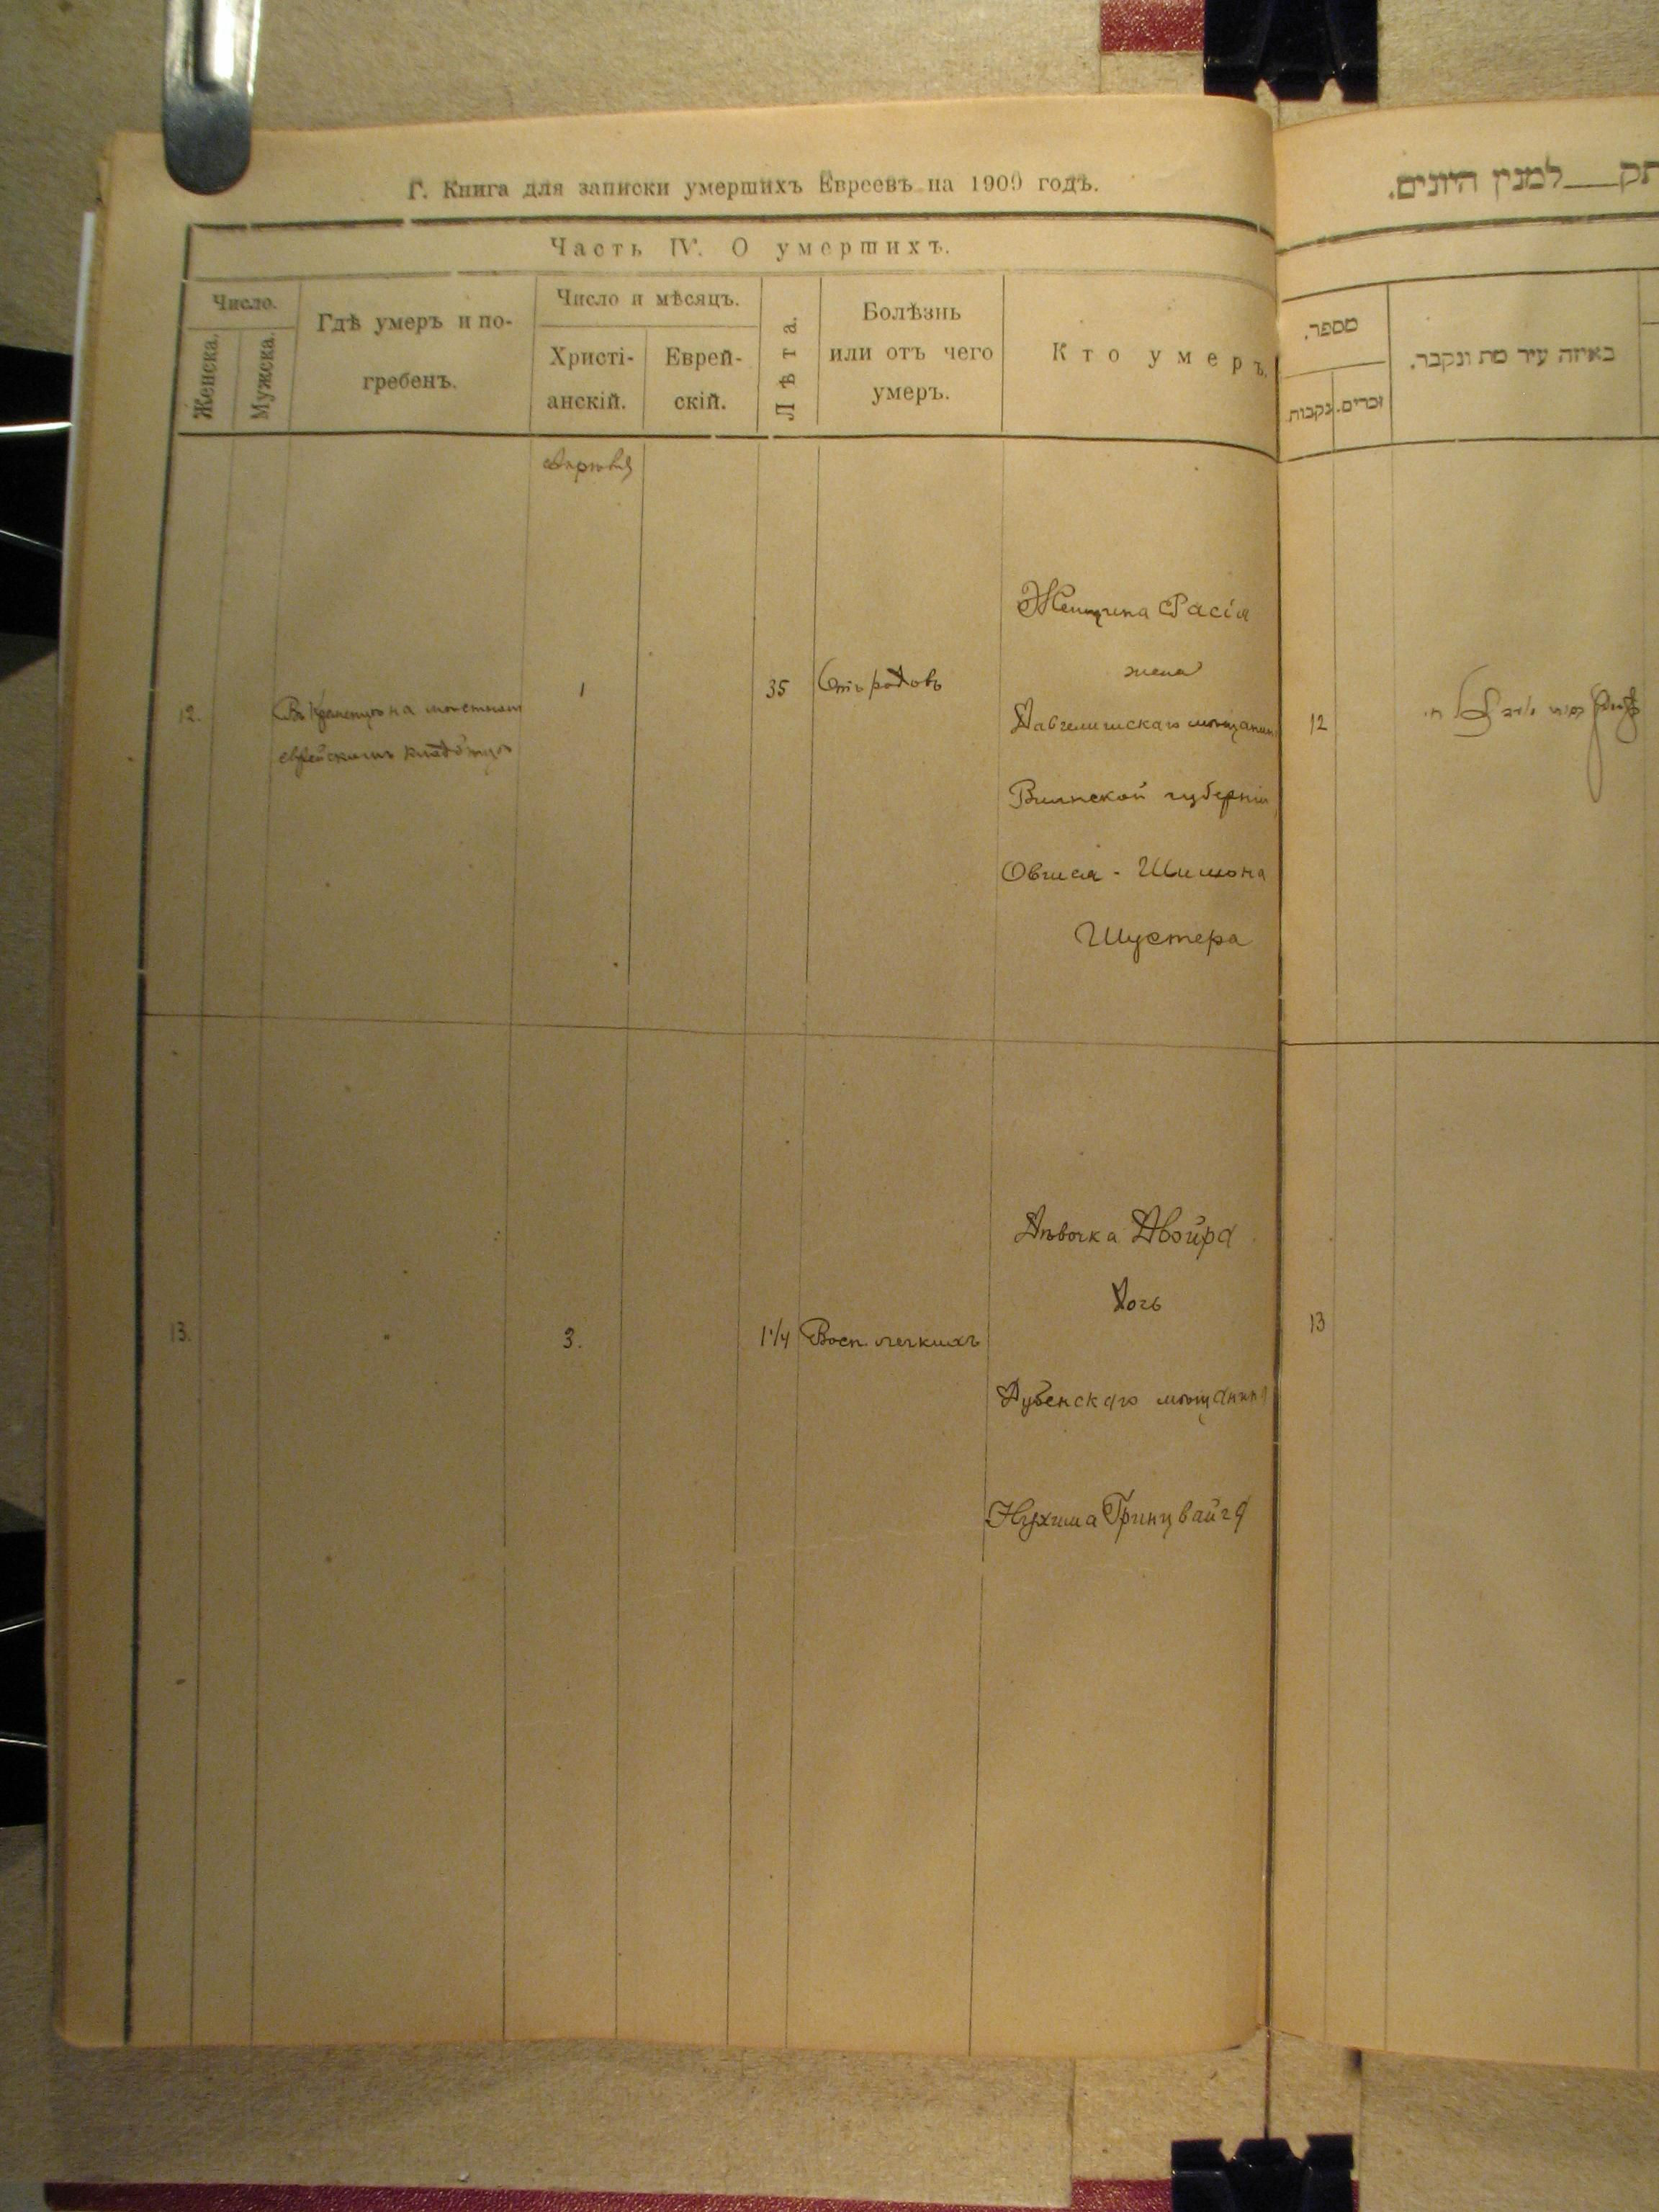 Г. Книга для записки умершихъ Евреевъ на 1909 годъ.
Часть IV. О умершихъ.
Число.
Женска.
Мужска.
Гдѣ умеръ и по-
гребенъ.
Число и мѣсяцъ.
Христі-
анскій.
Еврей-
скій.
Лѣта.
Болѣзнь
или отъ чего
умеръ.
Кто умеръ.
12.
Въ Кременцѣ на мѣстномъ
еврейскомъ кладбищѣ
Апрѣля
1
35
Отъ родовъ
Женщина Рася
жена
мѣщанина
Виленской губерніи
Шимона
Шустера
13.
3.
1 1/4
Восп. легкихъ
Дѣвочка Двойра
дочь
Дубенскаго мѣщанина
Нухима Гринцвайга
למנין היונים.
מספר.
נקבות
זכרים.
באיזה עיר מת ונקבר.
12
13